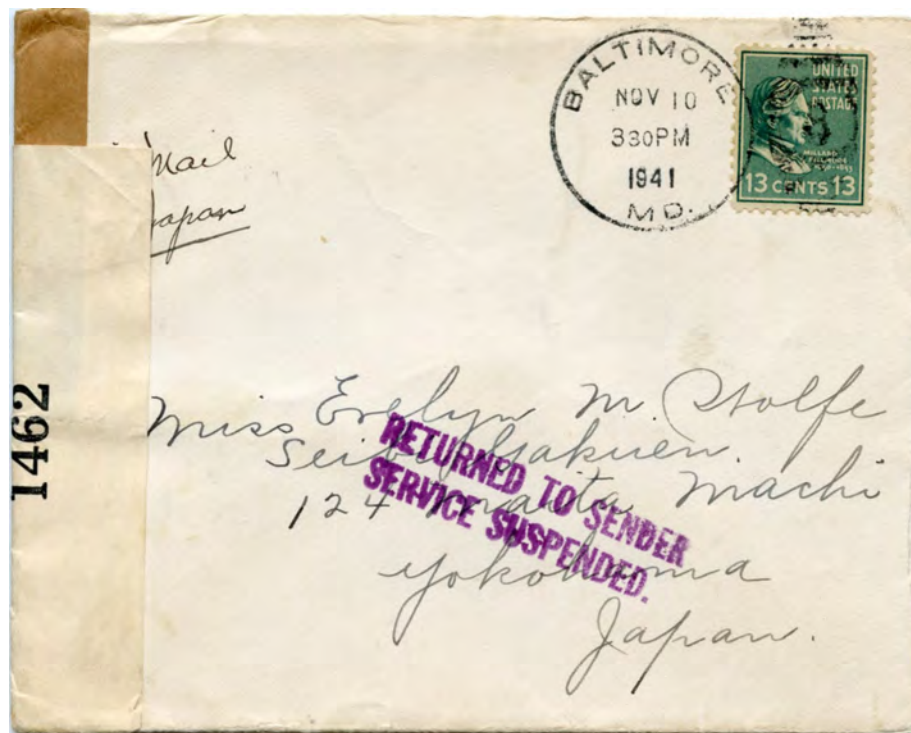 BALTIMORE
NOV 10
330PM
1941
MD.
UNITED
STATES
POSTAGE
MILLARD
FILLMORE
13 CENTS 13
Mail
Japan
1462
Miss Evelyn M. Wolfe
Seibi Gakuen
124 Maita Machi
Yokohama
Japan.
RETURNED TO SENDER
SERVICE SUSPENDED.